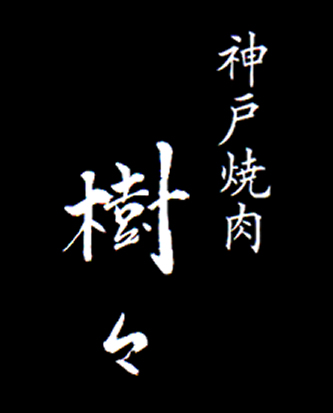 神戸焼肉
樹々